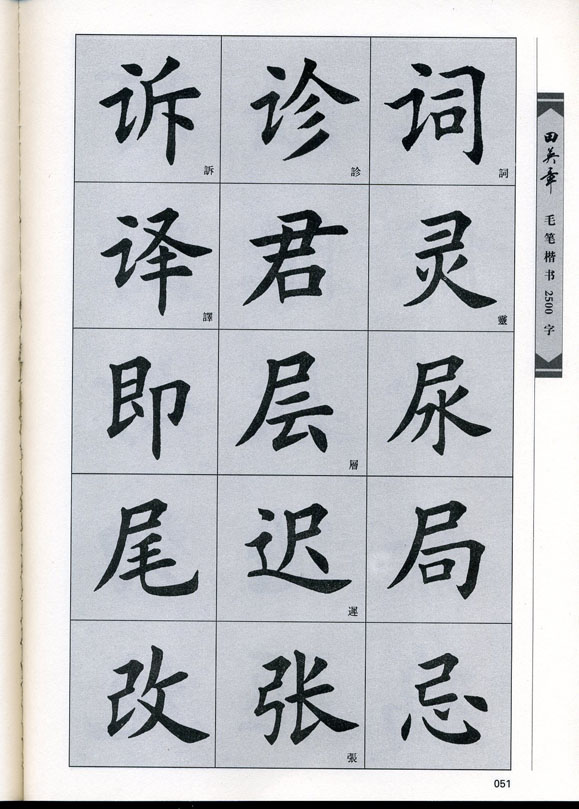 诉 诊 词
訴 診 詞
译 君 灵
譯 靈
即 层 尿
層
尾 迟 局
遲
改 张 忌
張
田英章
毛笔楷书 2500 字
051